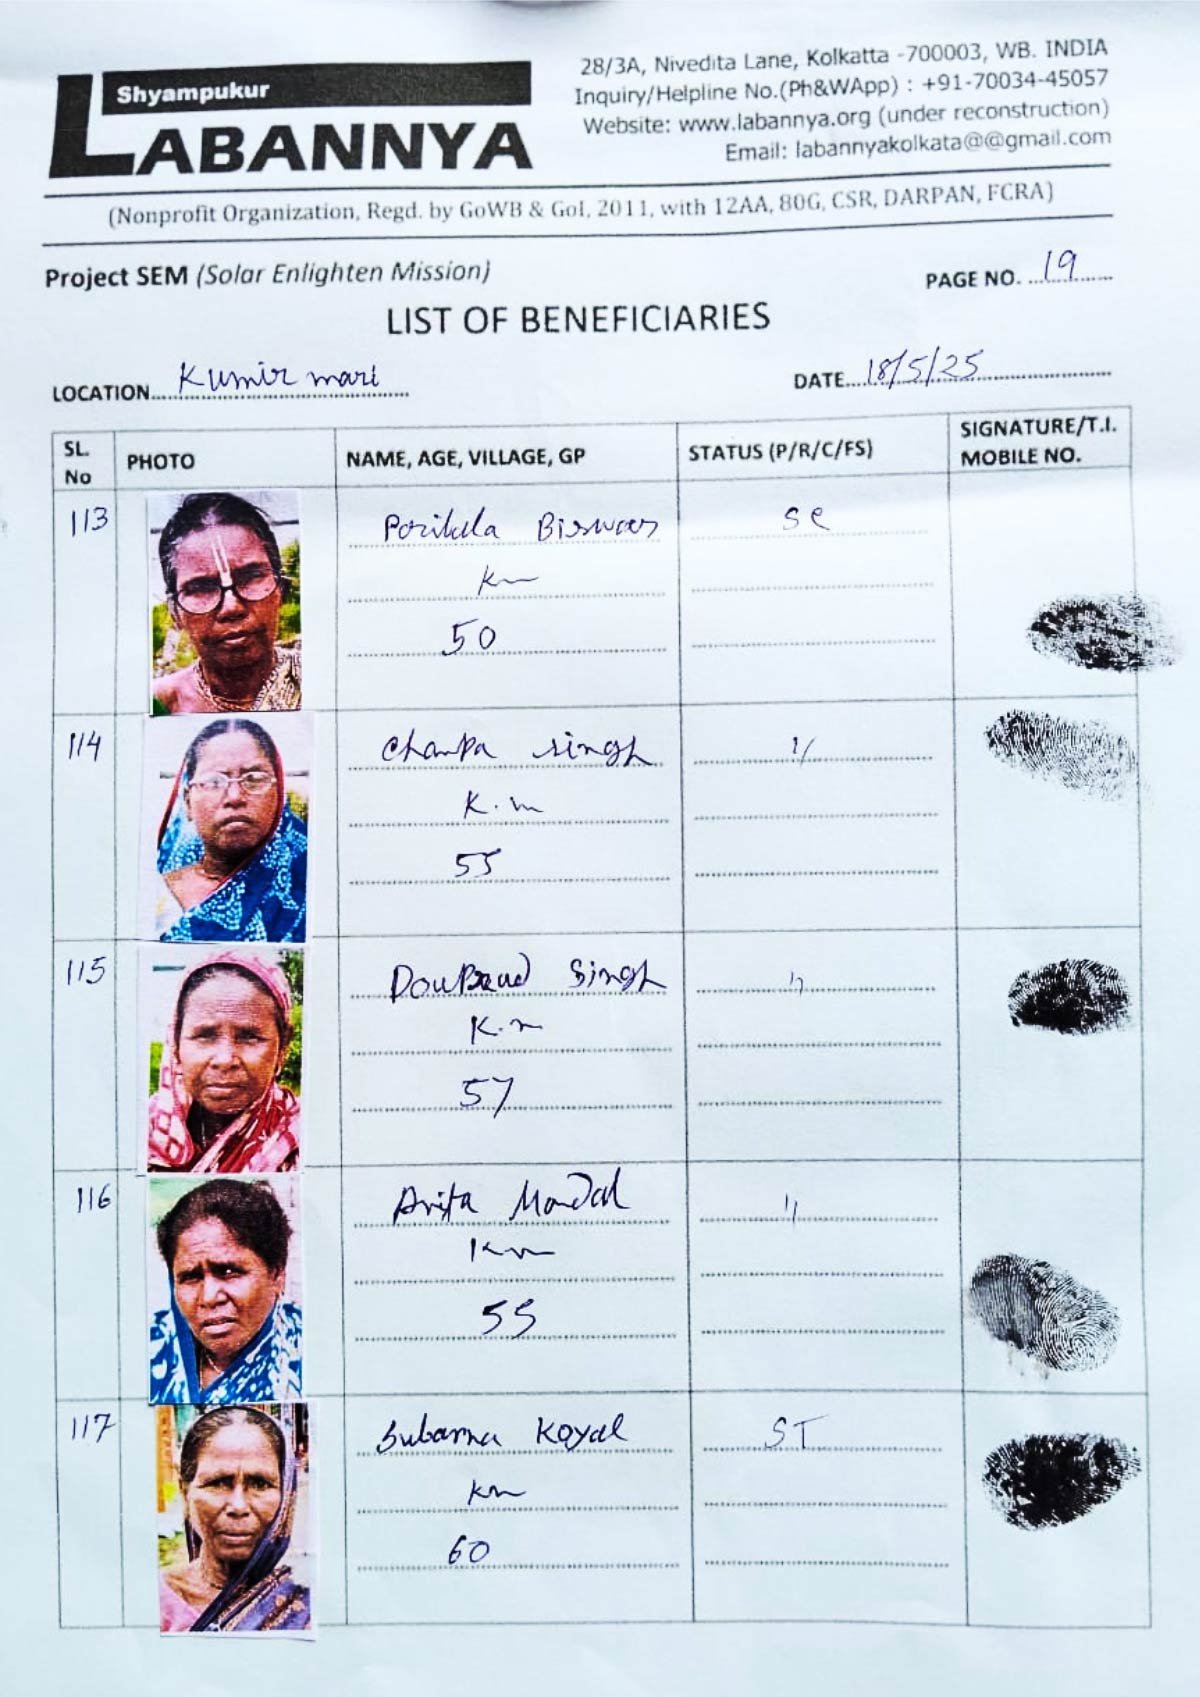 Shyampukur
LABANNYA
28/3A, Nivedita Lane, Kolkatta -700003, WB. INDIA
Inquiry/Helpline No.(Ph&WApp) : +91-70034-45057
Website: www.labannya.org (under reconstruction)
Email: labannyakolkata@@gmail.com
(Nonprofit Organization, Regd. by GoWB & GoI, 2011, with 12AA, 80G, CSR, DARPAN, FCRA)
Project SEM (Solar Enlighten Mission)
PAGE NO. 19
LIST OF BENEFICIARIES
LOCATION Kumirmari
DATE 18/5/25
SL. No PHOTO NAME, AGE, VILLAGE, GP STATUS (P/R/C/FS) SIGNATURE/T.I. MOBILE NO.
113 Biswas SC
Km
50
114 Champa Singh "
K.m
55
115 Singh "
K.m
57
116 Mondal "
Km
55
117 Subarna Koyal ST
Km
60